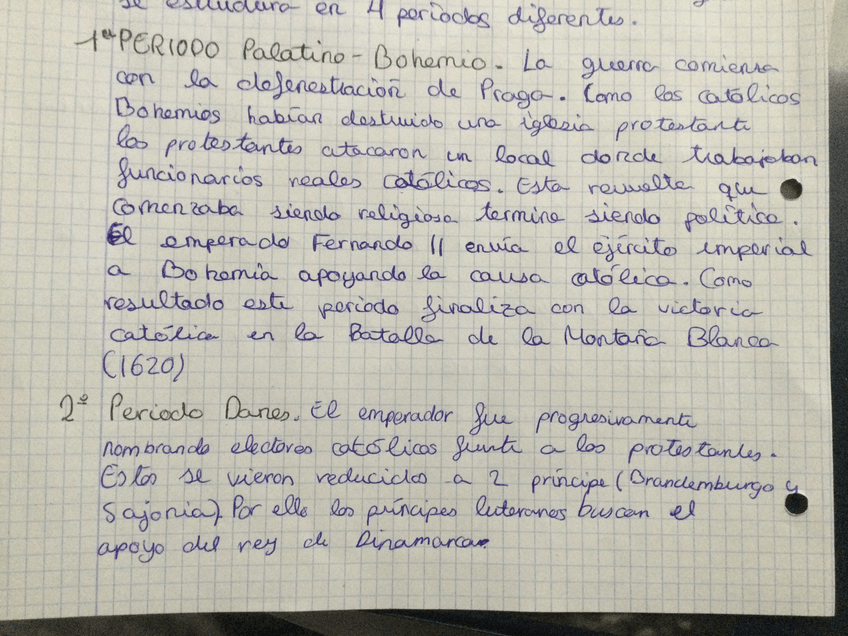 se estructura en 4 periodos diferentes.
1er PERIODO Palatino-Bohemio. La guerra comienza
con la defenestración de Praga. Como los católicos
Bohemios habían destruido una iglesia protestante
los protestantes atacaron un local donde trabajaban
funcionarios reales católicos. Esta revuelta que
comenzaba siendo religiosa termina siendo política.
El emperado Fernando II envía el ejército imperial
a Bohemia apoyando la causa católica. Como
resultado este periodo finaliza con la victoria
católica en la Batalla de la Montaña Blanca
(1620)
2º Periodo Danes. El emperador fue progresivamente
nombrando electores católicos frente a los protestantes.
Estos se vieron reducidos a 2 príncipe (Brandemburgo y
Sajonia). Por ello los príncipes luteranos buscan el
apoyo del rey de Dinamarca.